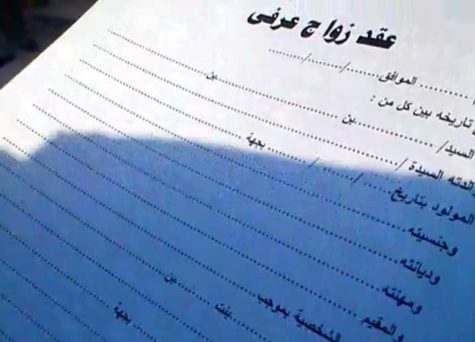 عقد زواج عرفى
الموافق ...../...../.....
تاريخه بين كل من :
السيد/ ..........بن ..........بن
السيدة /
المولود بتاريخ ...../...../..... بجهة
وجنسيته
وديانته
ومهنته
والمقيم
الشخصية بموجب
بنت ..........بن
بجهة